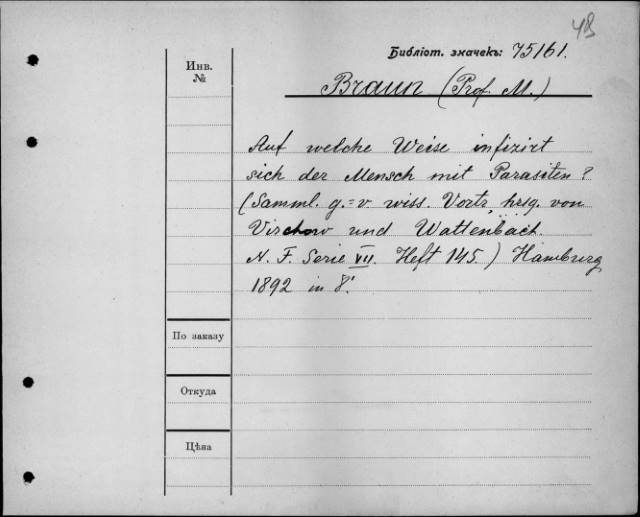 48
Библіот. значекъ: 75161.
Инв.
№
Braun (Prof. M.)
Auf welche Weise infizirt
sich der Mensch mit Parasiten?
(Samml. g.=v. wiss. Vortr. hrsg. von
Virchow und Wattenbach.
N. F. Serie VII. Heft 145.) Hamburg
1892 in 8°.
По заказу
Откуда
Цѣна